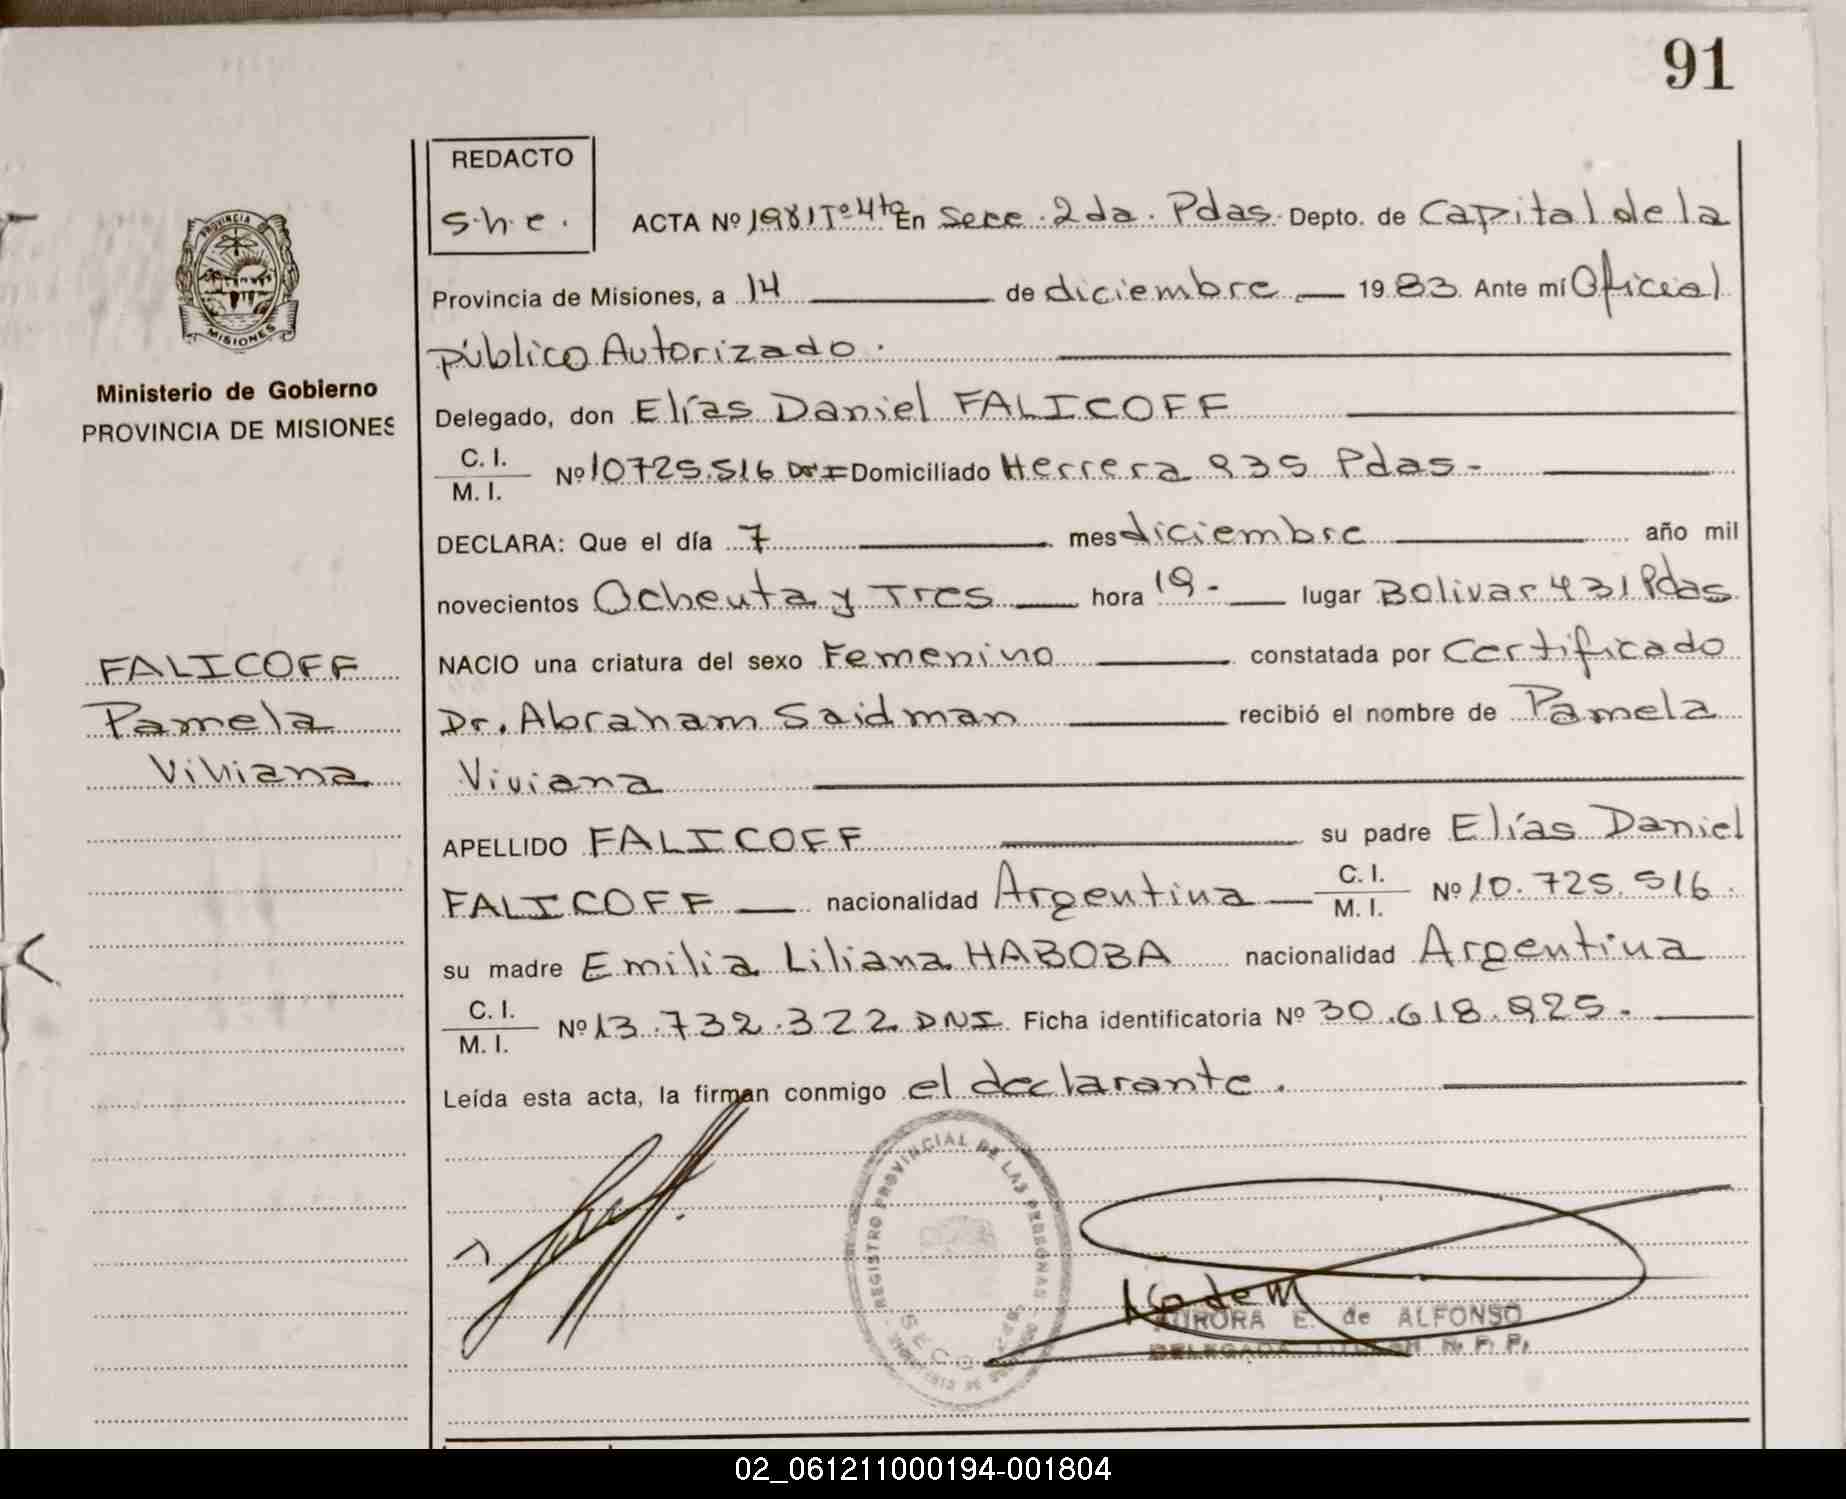 91
REDACTO
s.h.e.
ACTA Nº 1981 Tº 4to En Secc. 2da. Pdas. Depto. de Capital de la
PROVINCIA
MISIONES
Provincia de Misiones, a 14 de diciembre 1983 Ante mí Oficial
público Autorizado.
Ministerio de Gobierno
PROVINCIA DE MISIONES
Delegado, don Elías Daniel FALICOFF
C. I.
M. I.
Nº 10725.516 DNI Domiciliado Herrera 935 Pdas-
DECLARA: Que el día 7 mes diciembre año mil
novecientos Ochenta y Tres hora 19- lugar Bolivar 431 Pdas
FALICOFF
Pamela
Viviana
NACIO una criatura del sexo Femenino constatada por Certificado
Dr. Abraham Saidman recibió el nombre de Pamela
Viviana
APELLIDO FALICOFF su padre Elías Daniel
FALICOFF nacionalidad Argentina C. I. M. I. Nº 10.725.516.
su madre Emilia Liliana HABOBA nacionalidad Argentina
C. I.
M. I.
Nº 13.732.322 DNI Ficha identificatoria Nº 30.618.925.-
Leída esta acta, la firman conmigo el declarante.
REGISTRO PROVINCIAL DE LAS PERSONAS
AURORA E. de ALFONSO
DELEGADA TITULAR R. P. P.
02_061211000194-001804